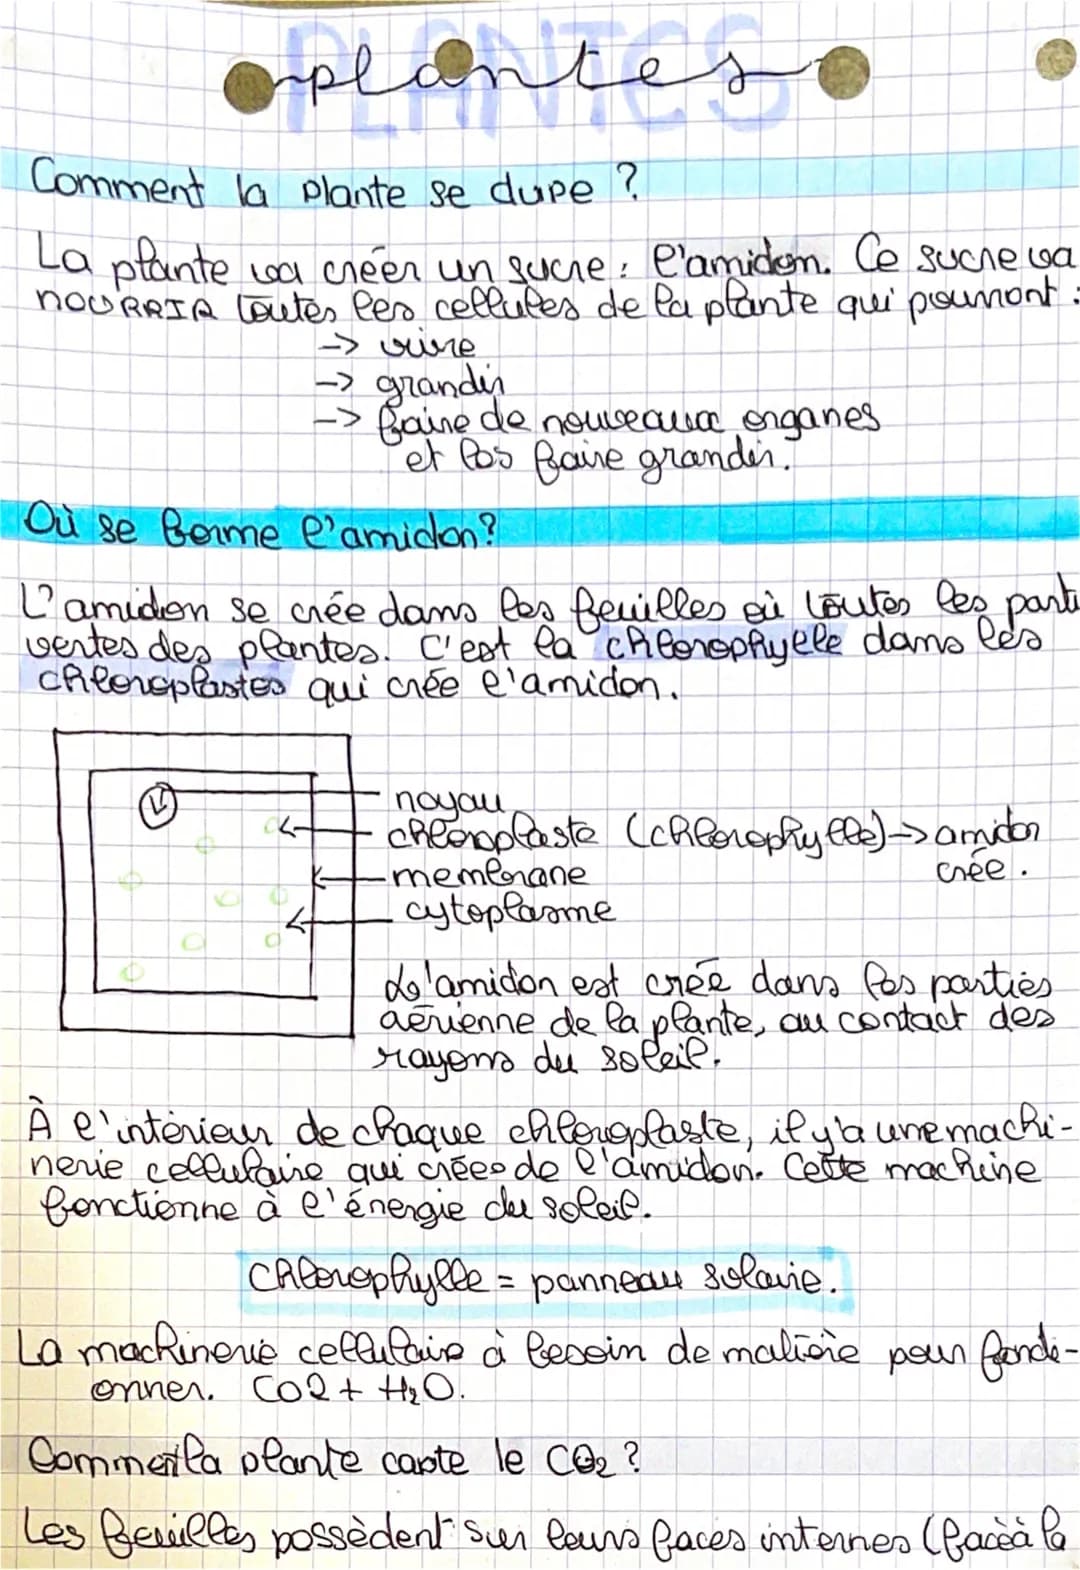 PLANTES
plantes
Comment la plante se dupe ?
La plante va créer un sucre : l'amidon. Ce sucre va
NOURRIR toutes les cellules de la plante qui pourront :
-> vivre
-> grandir
-> faire de nouveaux organes
et les faire grandir.
Où se forme l'amidon?
L'amidon se crée dans les feuilles où toutes les parti
vertes des plantes. C'est la chlorophylle dans les
chloroplastes qui crée l'amidon.
noyau
chloroplaste (chlorophylle) -> amidon
crée.
membrane
cytoplasme
L'amidon est créé dans les parties
aérienne de la plante, au contact des
rayons du soleil.
À l'intérieur de chaque chloroplaste, il y'a une machi-
nerie cellulaire qui crées de l'amidon. Cette machine
fonctionne à l'énergie du soleil.
Chlorophylle = panneau solaire.
La machinerie cellulaire à besoin de matière pour foncti-
onner. CO2 + H₂O.
Comment la plante capte le CO₂ ?
Les feuilles possèdent sur leurs faces internes (face à la